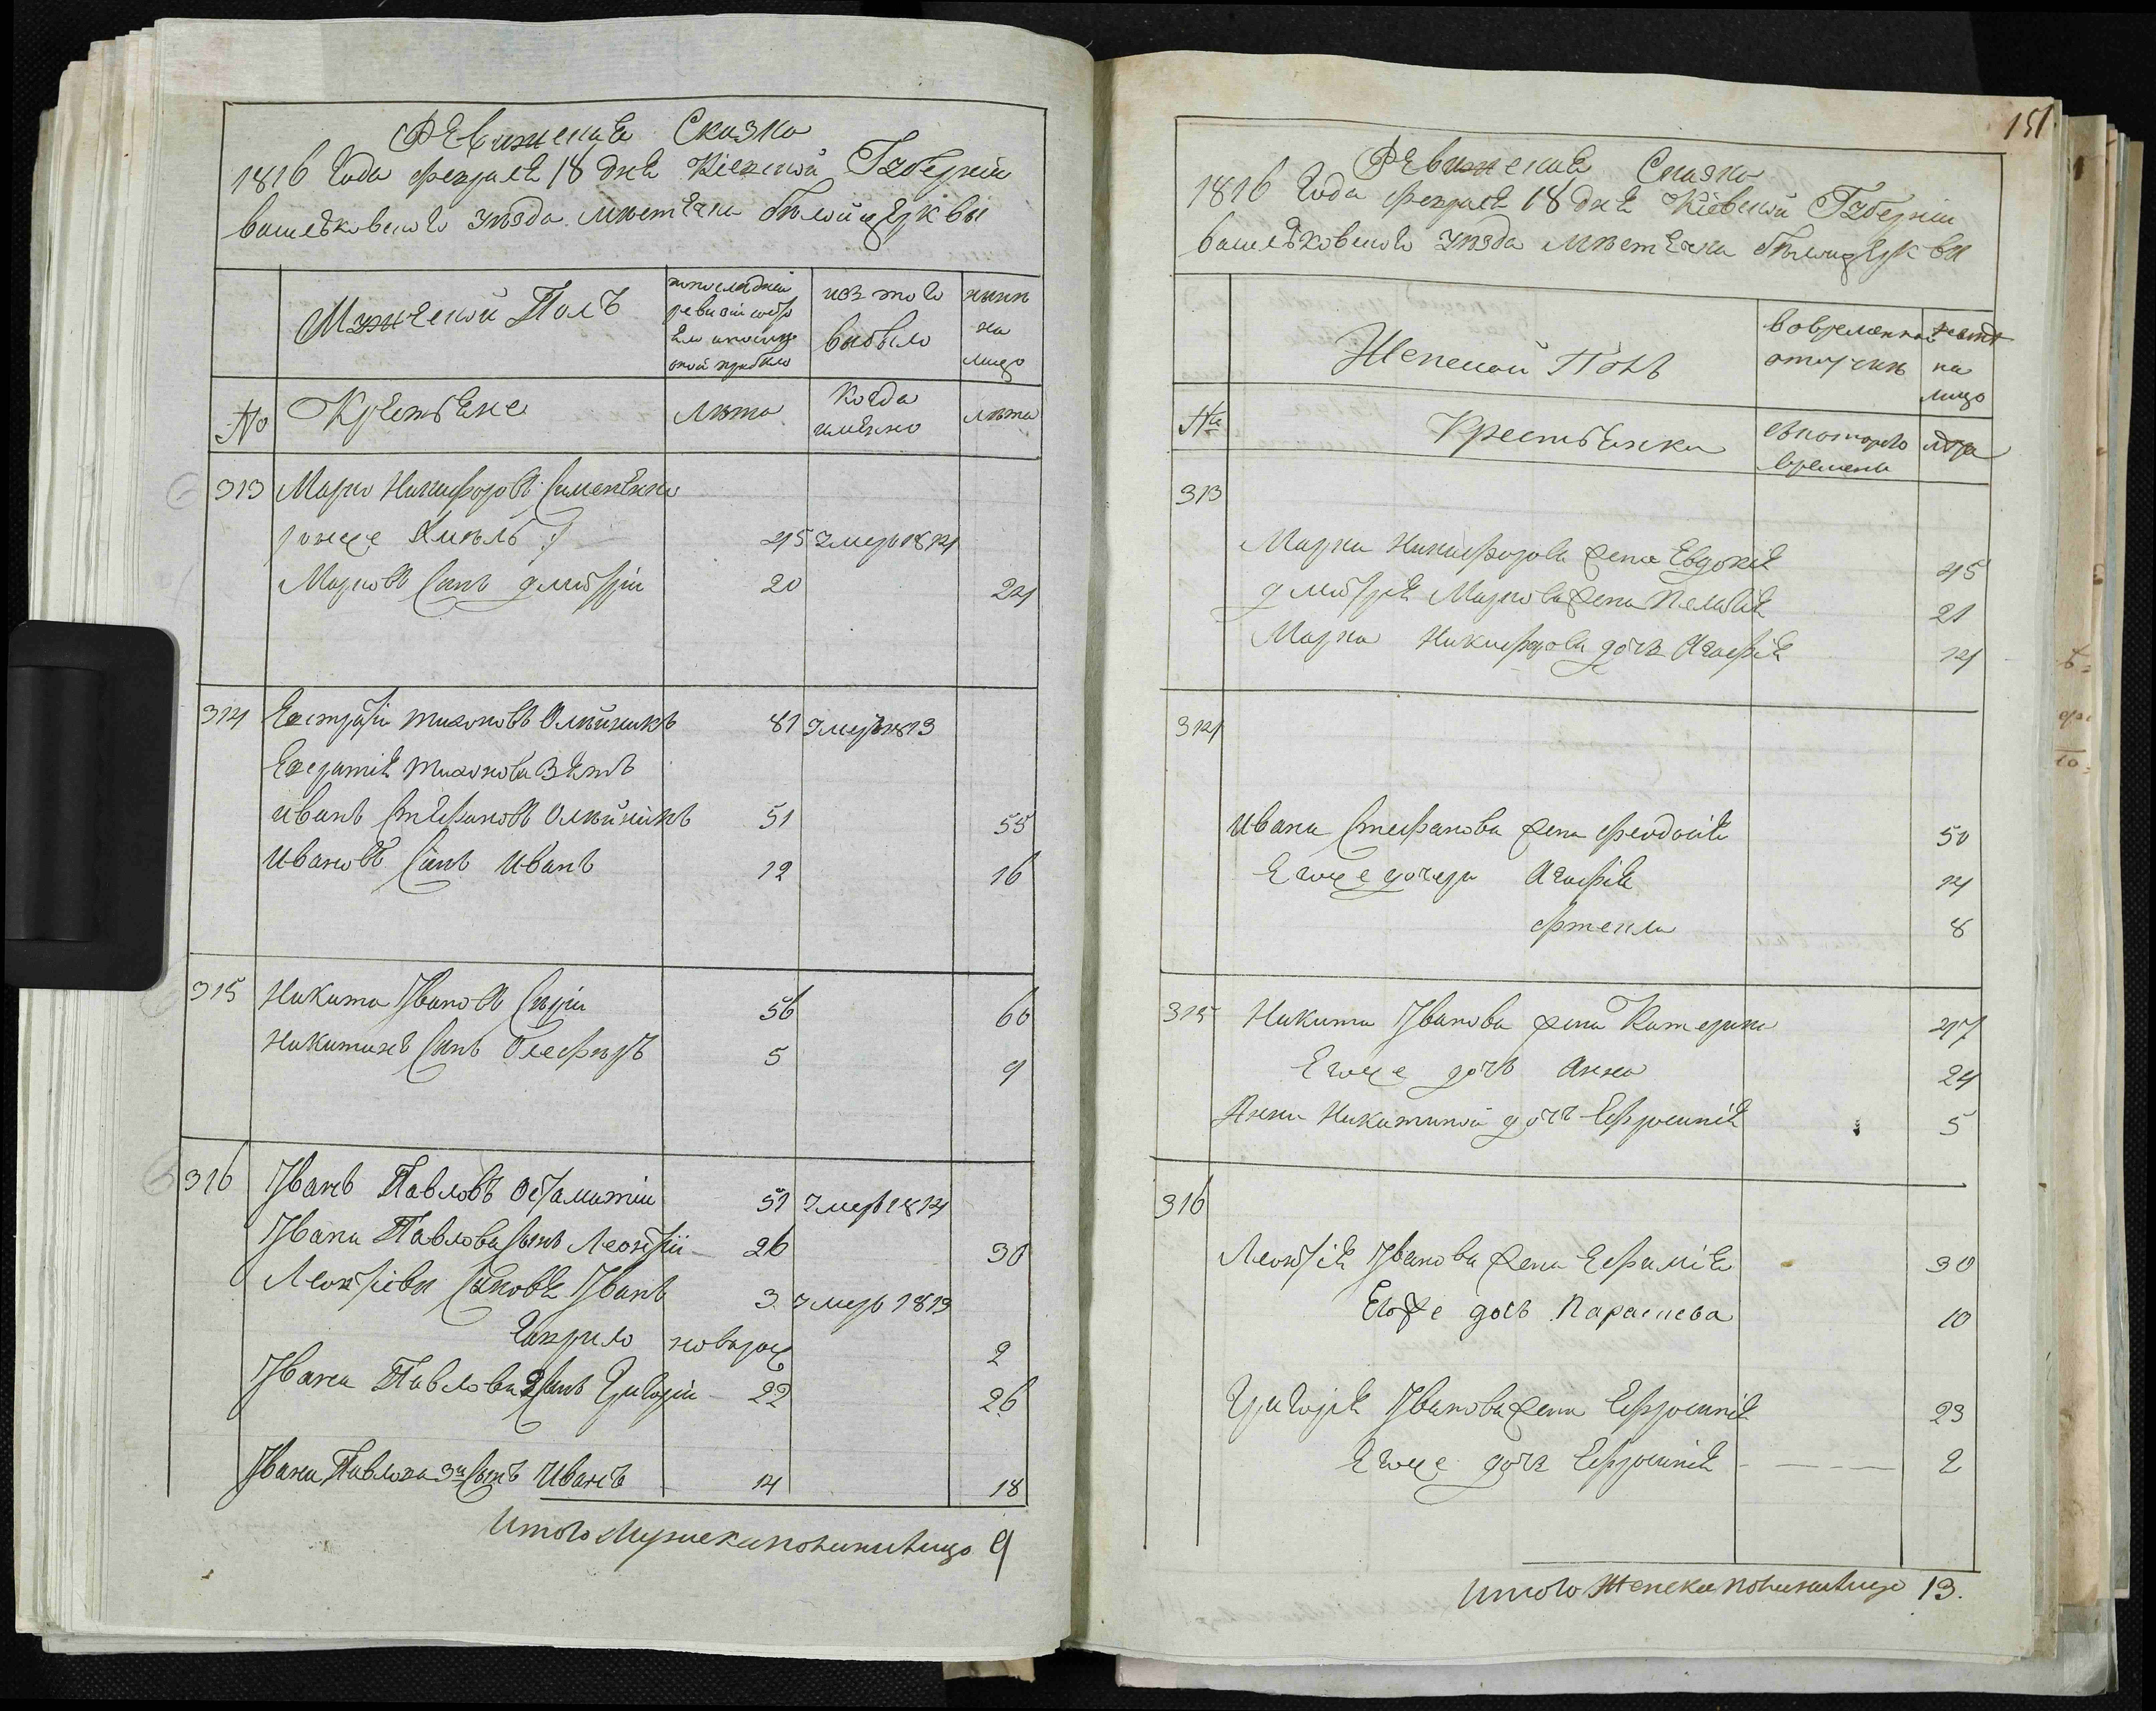 Ревижская Сказка
1816 Года февраля 18 дня Кіевской Губерніи
васильковского уезда местечка белой церкви
Мужеской Полъ
по последней ревизіи состояло и после оной прибыло
изъ того выбыло
ныне на лицо
№ Крестьяне
лета
когда именно
лета
313 Марко Никифоровъ
45 умеръ 1814
Марковъ сынъ дмитріи 20 24
314 Евстратіи тихоновъ Олейникъ 81 умеръ 1813
Евстратія тихонова Зять
иванъ Стефановъ Олейникъ 51 55
Ивановъ Синъ Иванъ 12 16
315 Никита Ивановъ 56 60
Никитинъ Синъ Олефиръ 5 9
316 Іванъ Павловъ 51 умеръ 1814
Івана Павлова сынъ Леонтіи 26 30
Леонтіевы сыновья Іванъ 3 умеръ 1813
Гаврило новорож 2
Івана Павлова 2 сынъ Григоріи 22 26
Івана Павлова 3й сынъ Иванъ 14 18
Итого Мужеска пола на лицо 9
151
Ревижская Сказка
1816 Года февраля 18 дня Кіевской Губерніи
васильковского уезда местечка белой церкви
Женской Полъ
во временной отлучке
на лицо
№ Крестьянки
съ которого времени
лета
313
Марка Никифорова жена Евдокія 45
дмитрія Маркова жена Пелагія 21
Марка Никифорова дочь Агафія 14
314
Ивана Стефанова жена феодосія 50
Егоже дочери Агафія 14
фтекла 8
315 Никиты Іванова жена Катерина 47
Егоже дочь Анна 24
Анны Никитиной дочь Ефросинія 5
316
Леонтія Іванова жена Ефимія 30
Егоже дочь Параскева 10
Григорія Іванова жена Ефросинія 23
Егоже дочь Ефросинія 2
Итого Женска пола на лицо 13.